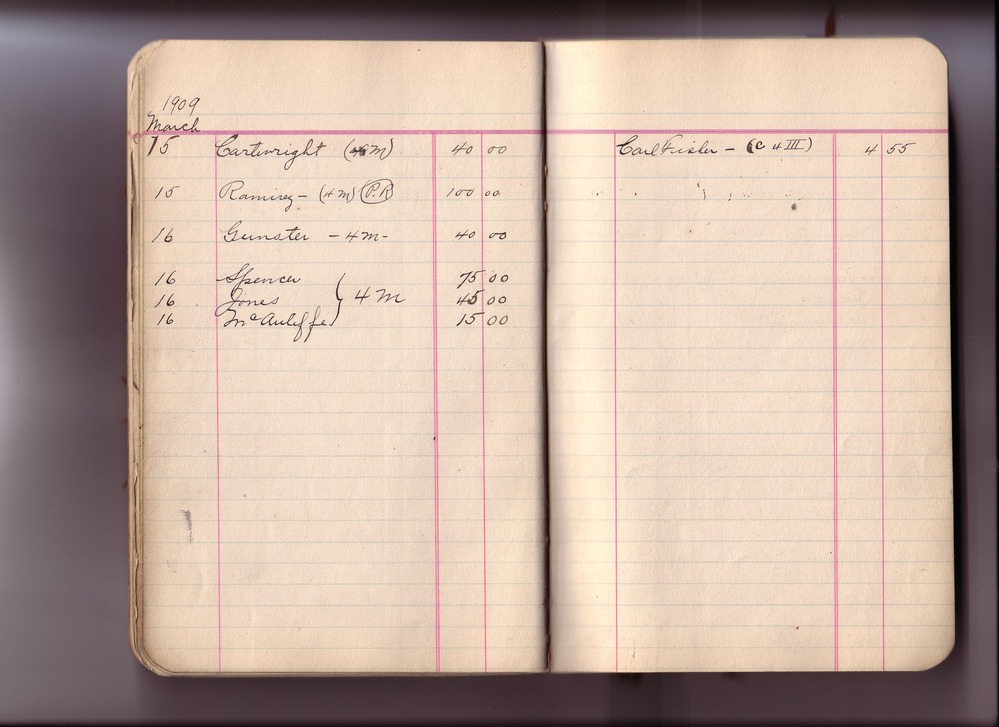 1909
March
15 Cartwright (4m) 40 00
15 Ramirez - (4m) (P.R) 100 00
16 Gunster - 4m - 40 00
16 Spencer 75 00
16 Jones } 4 m 45 00
16 McAuliffe 15 00
Carl - (C 4 III) 4 55